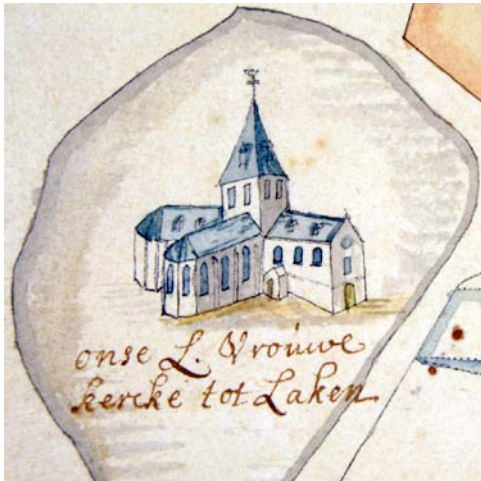 onse L. Vrouwe
kercke tot Laken